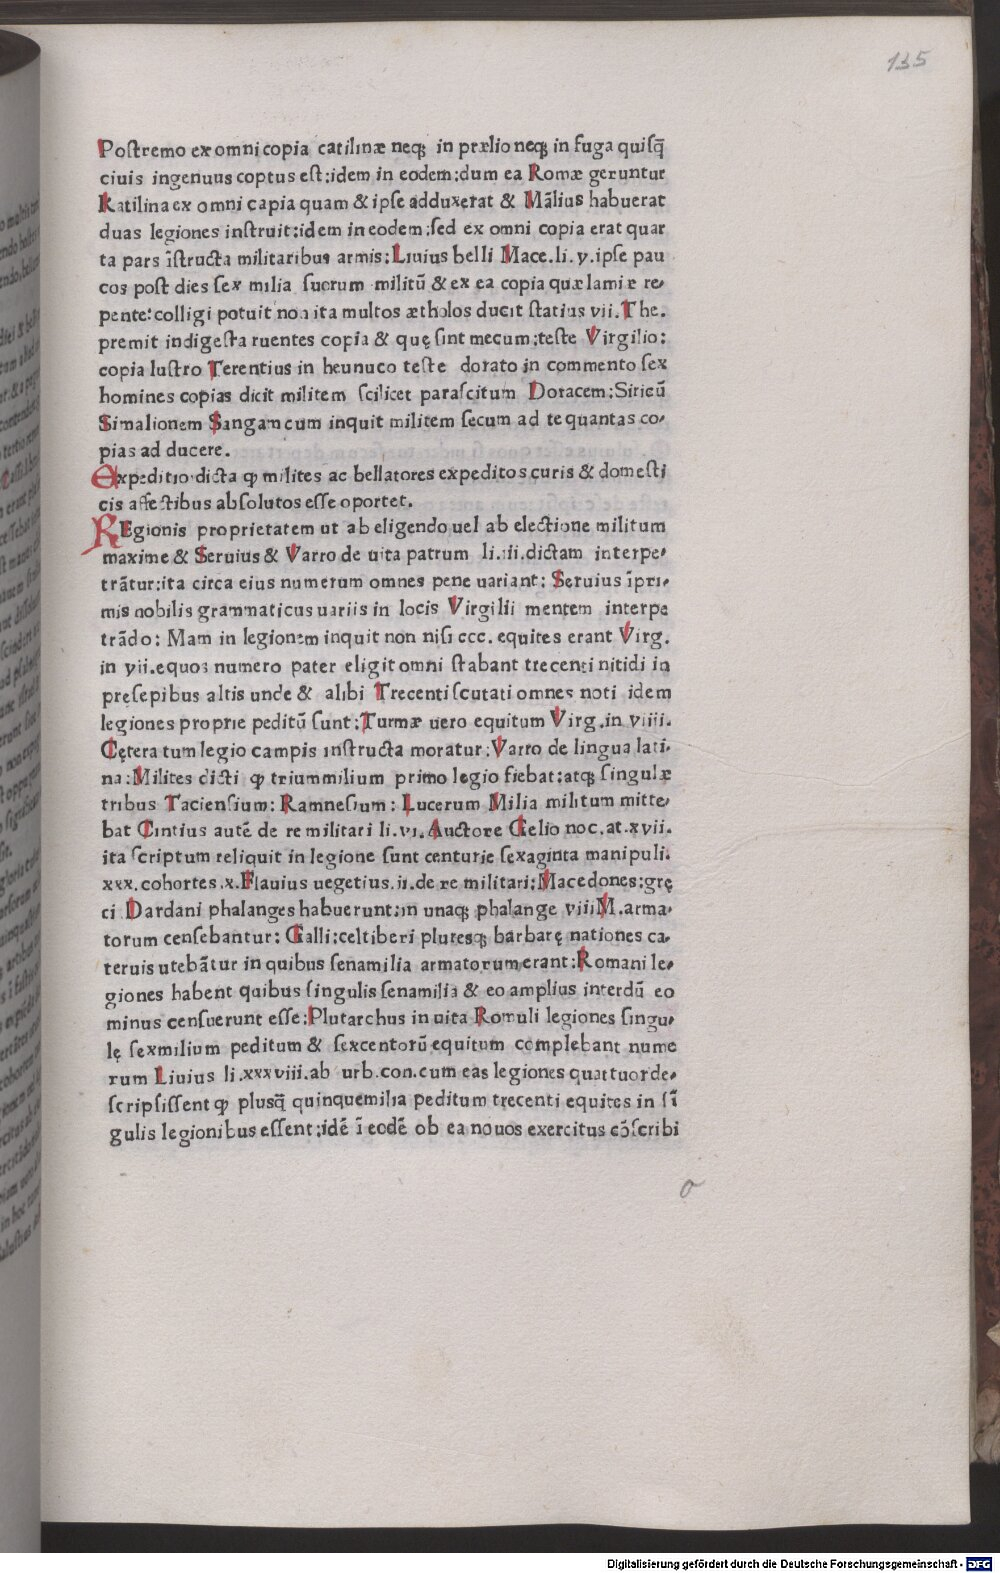 135
Postremo ex omni copia catilinæ neqꝫ in prælio neqꝫ in fuga quisq̃
ciuis ingenuus coptus est:idem in eodem:dum ea Romæ geruntur
Katilina ex omni capia quam & ipse adduxerat & Mãlius habuerat
duas legiones instruit:idem in eodem:sed ex omni copia erat quar
ta pars ĩstructa militaribus armis:Liuius belli Mace.li.y.ipse pau
cos post dies sex milia suorum militũ & ex ea copia quæ lamiæ re⸗
pente:colligi potuit non ita multos ætholos ducit statius vii.The.
premit indigesta ruentes copia & quę sint mecum:teste Virgilio:
copia lustro Terentius in heunuco teste dorato in commento sex
homines copias dicit militem scilicet parascitum Doracem:Siricũ
Simalionem Sangam cum inquit militem secum ad te quantas co⸗
pias ad ducere.
Expeditio dicta ꝙ milites ac bellatores expeditos curis & domesti
cis affectibus absolutos esse oportet.
REgionis proprietatem ut ab eligendo uel ab electione militum
maxime & Seruius & Varro de uita patrum li.iii.dictam interpe⸗
trãtur:ita circa eius numerum omnes pene uariant: Seruius ĩpri⸗
mis nobilis grammaticus uariis in locis Virgilii mentem interpe
trãdo: Mam in legionem inquit non nisi ccc. equites erant Virg.
in yii.equos numero pater eligit omni stabant trecenti nitidi in
pręsepibus altis unde & alibi Trecenti scutati omnes noti idem
legiones proprie peditũ sunt:Turmæ uero equitum Virg.in viiii.
Cętera tum legio campis instructa moratur:Varro de lingua lati⸗
na:Milites dicti ꝙ triummilium primo legio fiebat:atqꝫ singulæ
tribus Taciensium: Ramnesium: Lucerum Milia militum mitte⸗
bat Cintius autẽ de re militari li.vi.Auctore Gelio noc.at.xvii.
ita scriptum reliquit in legione sunt centurie sexaginta manipuli.
xxx.cohortes.x.Flauius uegetius.ii.de re militari:Macedones:grę
ci Dardani phalanges habuerunt:in unaqꝫ phalange viiiM.arma⸗
torum censebantur: Galli:celtiberi pluresqꝫ barbarę nationes ca⸗
teruis utebãtur in quibus senamilia armatorum erant:Romani le⸗
giones habent quibus singulis senamilia & eo amplius interdũ eo
minus censuerunt esse:Plutarchus in uita Romuli legiones singu⸗
lę sexmilium peditum & sexcentorũ equitum complebant nume
rum Liuius li.xxxviii.ab urb.con.cum eas legiones quattuor de⸗
scripsissent ꝙ plusq̃ quinquemilia peditum trecenti equites in sĩ
gulis legionibus essent:idẽ ĩ eodẽ ob ea nouos exercitus cõscribi
o
Digitalisierung gefördert durch die Deutsche Forschungsgemeinschaft - DFG